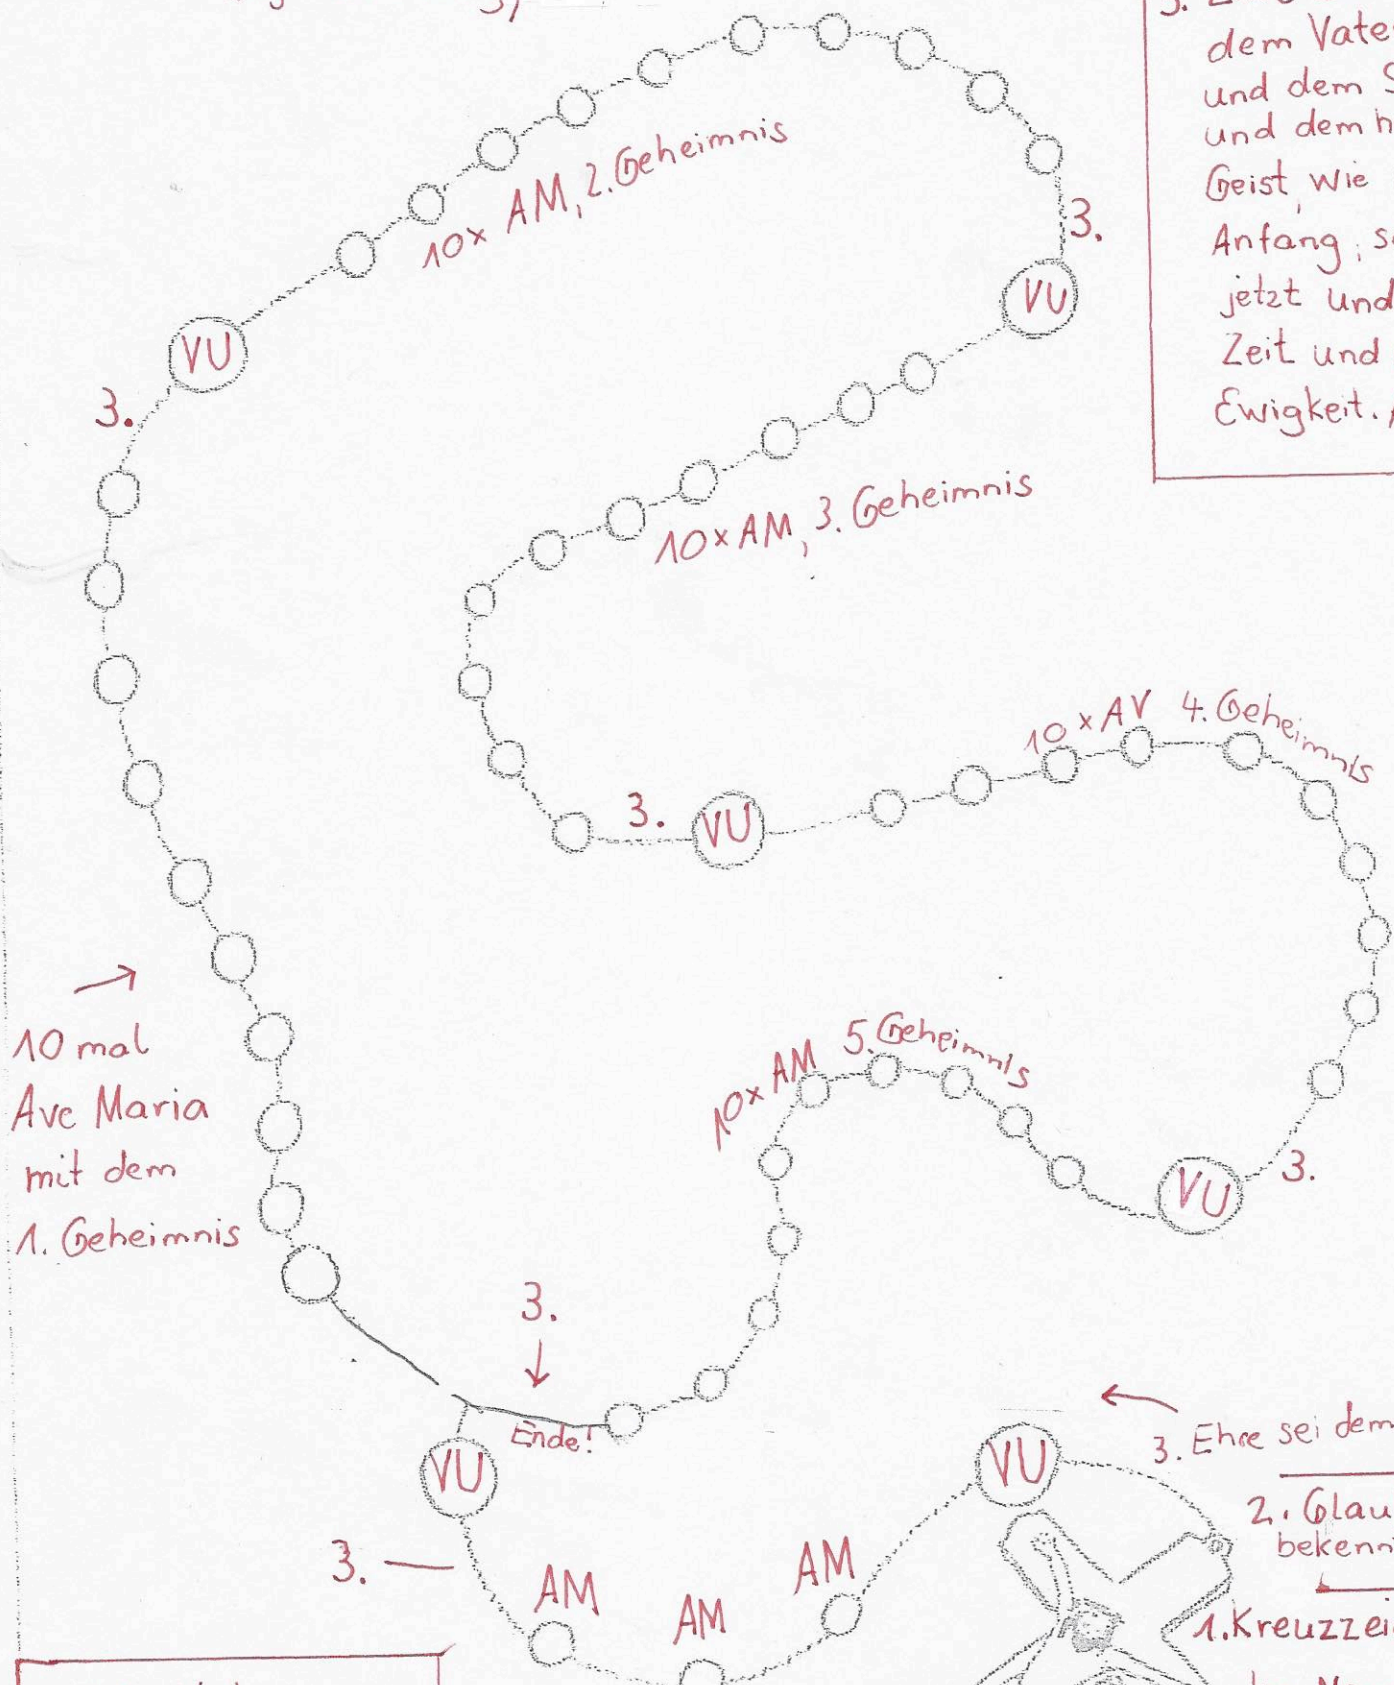 dem
und dem
und dem
Geist, wie
Anfang, 
jetzt und
Zeit und
Ewigkeit.
10x AM, 2. Geheimnis
3.
VU
VU
3.
10x AM, 3. Geheimnis
10 x AV 4. Geheimnis
3.
VU
→
10 mal
Ave Maria
mit dem
1. Geheimnis
10x AM 5. Geheimnis
VU
3.
3.
↓
Ende!
VU
VU
←
3. Ehre sei dem
2.
1.
3.
AM
AM
AM